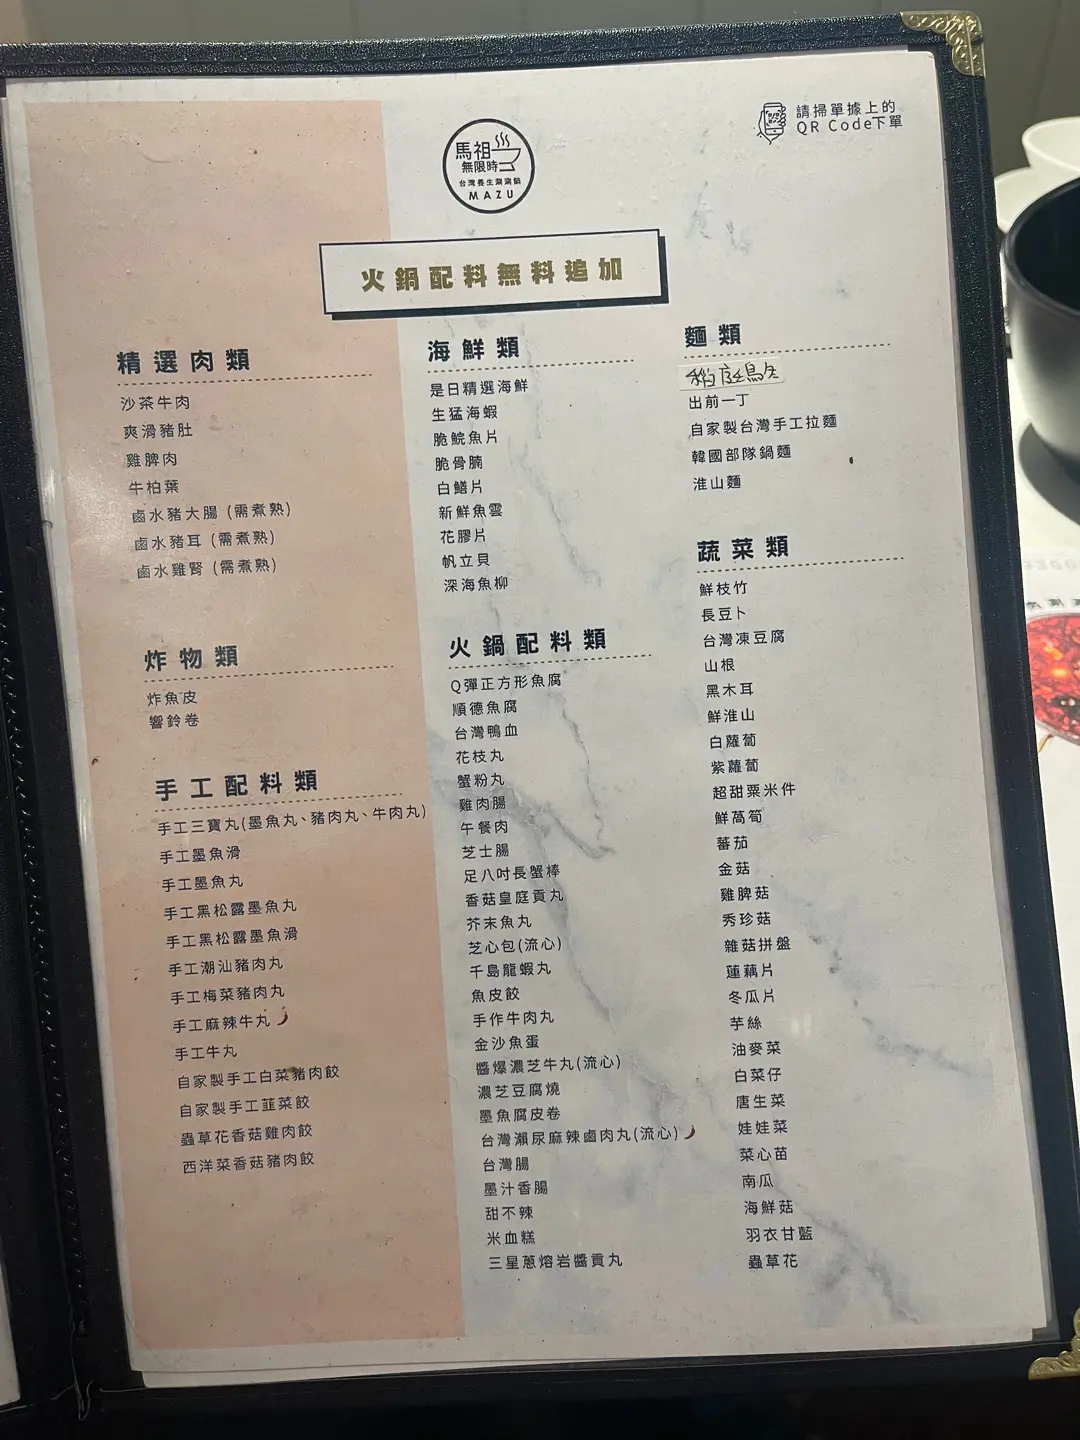 請掃單據上的
QR Code下單
馬祖
無限時
台灣養生涮涮鍋
MAZU
火鍋配料無料追加
精選肉類
沙茶牛肉
爽滑豬肚
雞脾肉
牛柏葉
鹵水豬大腸 (需煮熟)
鹵水豬耳 (需煮熟)
鹵水雞腎 (需煮熟)
炸物類
炸魚皮
響鈴卷
手工配料類
手工三寶丸(墨魚丸、豬肉丸、牛肉丸)
手工墨魚滑
手工墨魚丸
手工黑松露墨魚丸
手工黑松露墨魚滑
手工潮汕豬肉丸
手工梅菜豬肉丸
手工麻辣牛丸
手工牛丸
自家製手工白菜豬肉餃
自家製手工韮菜餃
蟲草花香菇雞肉餃
西洋菜香菇豬肉餃
海鮮類
是日精選海鮮
生猛海蝦
脆鯇魚片
脆骨腩
白鱔片
新鮮魚雲
花膠片
帆立貝
深海魚柳
火鍋配料類
Q彈正方形魚腐
順德魚腐
台灣鴨血
花枝丸
蟹粉丸
雞肉腸
午餐肉
芝士腸
足八吋長蟹棒
香菇皇庭貢丸
芥末魚丸
芝心包(流心)
千島龍蝦丸
魚皮餃
手作牛肉丸
金沙魚蛋
醬爆濃芝牛丸(流心)
濃芝豆腐燒
墨魚腐皮卷
台灣瀨尿麻辣鹵肉丸(流心)
台灣腸
墨汁香腸
甜不辣
米血糕
三星蔥熔岩醬貢丸
麵類
稻庭烏冬
出前一丁
自家製台灣手工拉麵
韓國部隊鍋麵
淮山麵
蔬菜類
鮮枝竹
長豆卜
台灣凍豆腐
山根
黑木耳
鮮淮山
白蘿蔔
紫蘿蔔
超甜粟米件
鮮萵筍
蕃茄
金菇
雞脾菇
秀珍菇
雜菇拼盤
蓮藕片
冬瓜片
芋絲
油麥菜
白菜仔
唐生菜
娃娃菜
菜心苗
南瓜
海鮮菇
羽衣甘藍
蟲草花